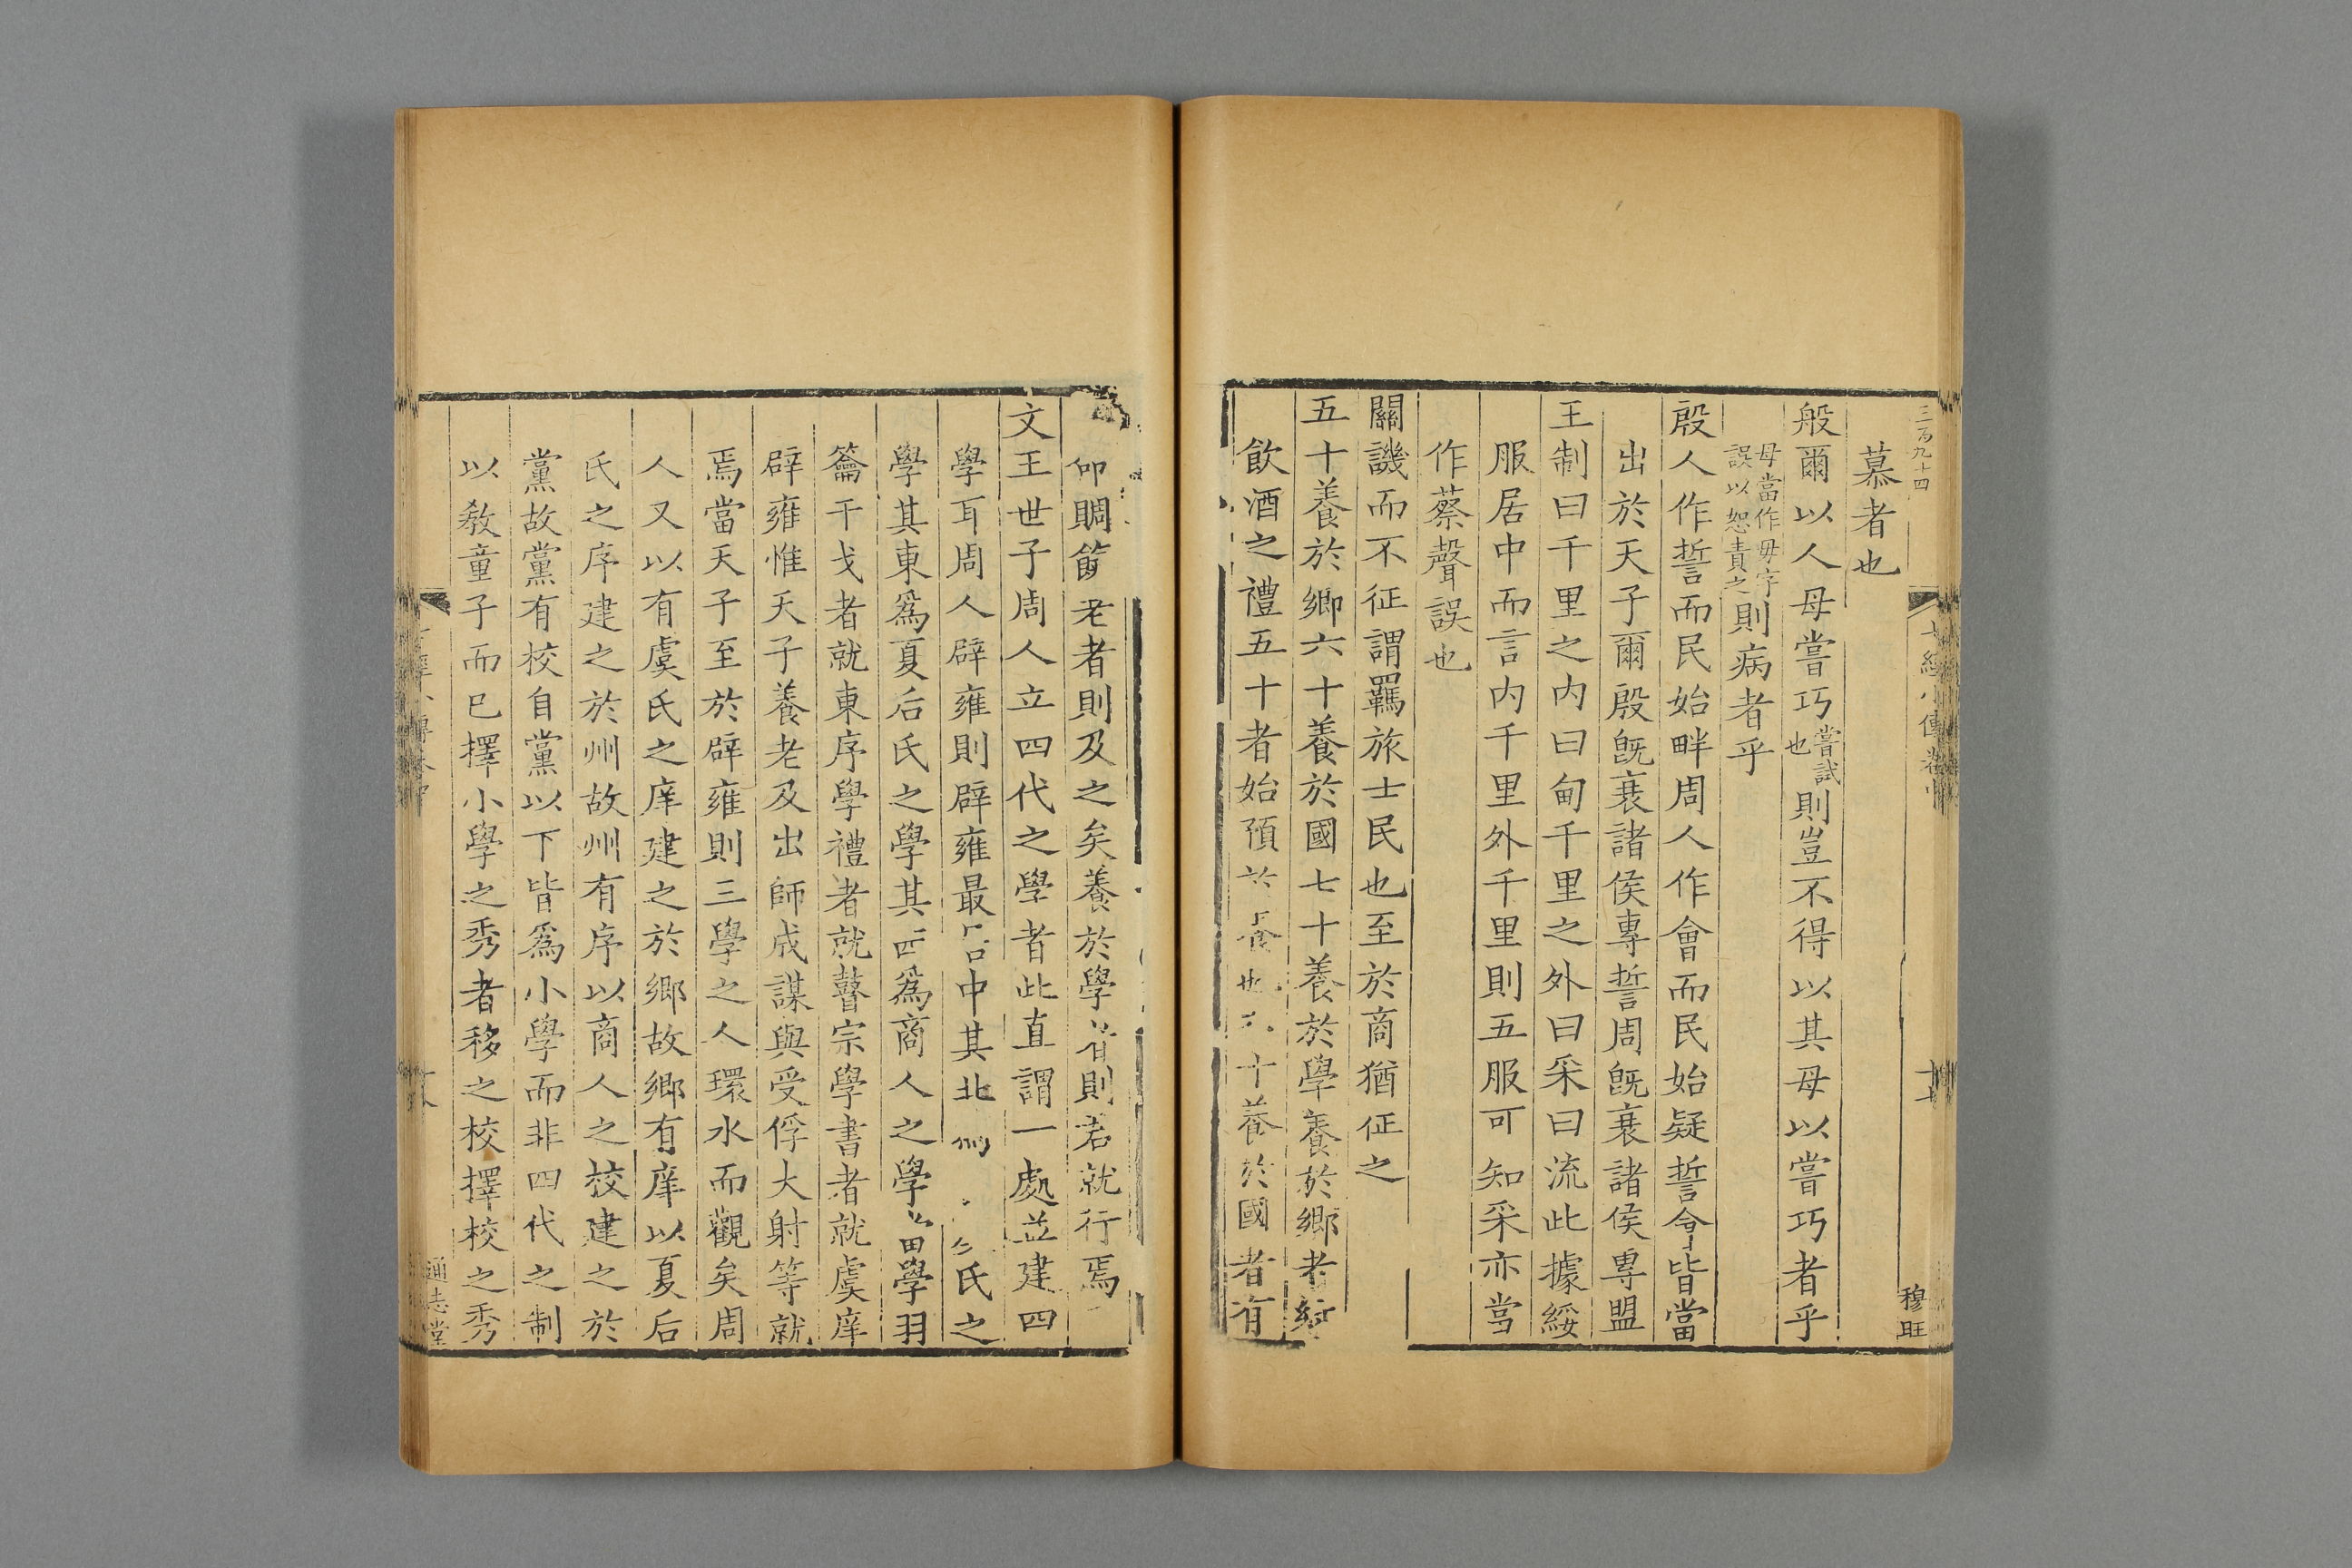 三百九十四
七經小傳卷中
十七
穆旺
慕者也
般爾以人母嘗巧嘗試也則豈不得以其母以嘗巧者乎
母當作毋字誤以恕責之則病者乎
殷人作誓而民始畔周人作會而民始疑誓令皆當
出於天子爾殷旣衰諸侯專誓周旣衰諸侯專盟
王制曰千里之內曰甸千里之外曰采曰流此據綏
服居中而言內千里外千里則五服可知采亦當
作蔡聲誤也
關譏而不征謂羈旅士民也至於商猶征之
五十養於鄉六十養於國七十養於學養於鄉者
飲酒之禮五十者始預於養也六十養於國者有
賙餼老者則及之矣養於學者則就行焉
文王世子周人立四代之學者此直謂一處並建四
學耳周人辟雍則辟雍最居中其北氏之
學其東爲夏后氏之學其西爲商人之學當學羽
籥干戈者就東序學禮者就瞽宗學書者就虞庠
辟雍惟天子養老及出師成謀與受俘大射等就
焉當天子至於辟雍則三學之人環水而觀矣周
人又以有虞氏之庠建之於鄉故鄉有庠以夏后
氏之序建之於州故州有序以商人之校建之於
黨故黨有校自黨以下皆爲小學而非四代之制
以教童子而已擇小學之秀者移之校擇校之秀
通志堂